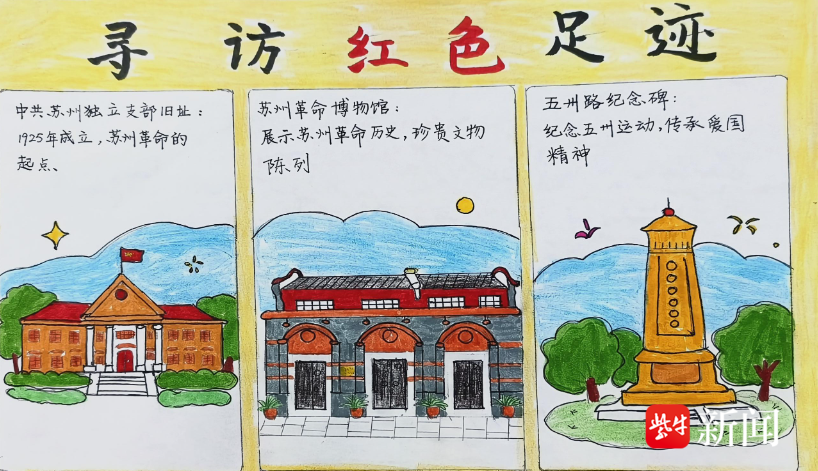 寻访红色足迹
中共苏州独立支部旧址：
1925年成立，苏州革命的
起点、
苏州革命博物馆：
展示苏州革命历史，珍贵文物
陈列
五卅路纪念碑：
纪念五卅运动，传承爱国
精神
紫牛新闻